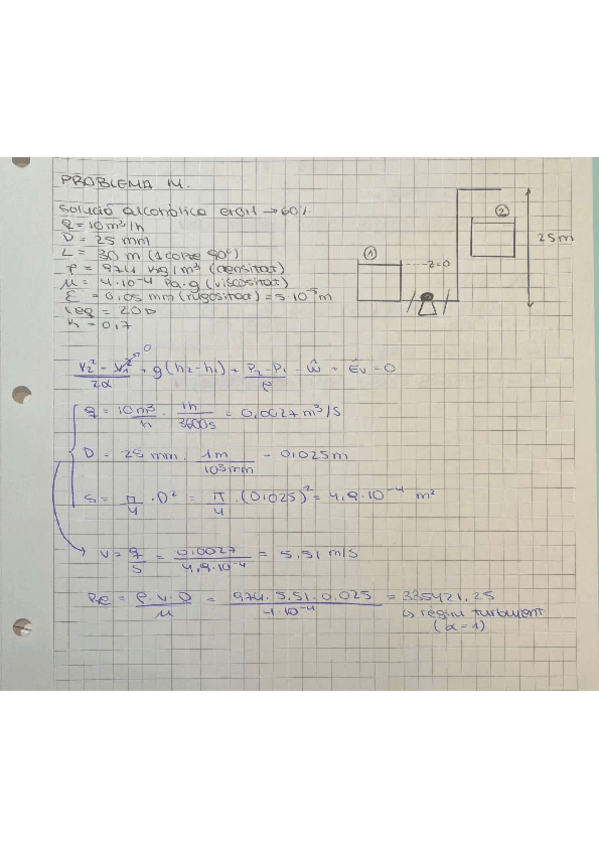 PROBLEMA 14.
Solució alcohòlica etOH → 60%
q = 10 m³/h
D = 25 mm
L = 30 m (1 colze 90º)
ρ = 974 kg/m³ (densitat)
μ = 4·10⁻⁴ Pa·s (viscositat)
ε = 0,05 mm (rugositat) = 5·10⁻⁵ m
Leq = 20D
K = 0,7
①
z=0
②
25m
(v₂² - v₁²)/2α + g(h₂-h₁) + (P₂-P₁)/ρ - Ŵ + Êv = 0
0
q = 10m³/h · 1h/3600s = 0,0027 m³/s
D = 25 mm · 1m/10³mm = 0,025m
S = π/4 · D² = π/4 · (0,025)² = 4,9·10⁻⁴ m²
v = q/S = 0,0027/4,9·10⁻⁴ = 5,51 m/s
Re = ρ·v·D/μ = 974·5,51·0,025/4·10⁻⁴ = 335421,25
↳ règim turbulent
(α=1)